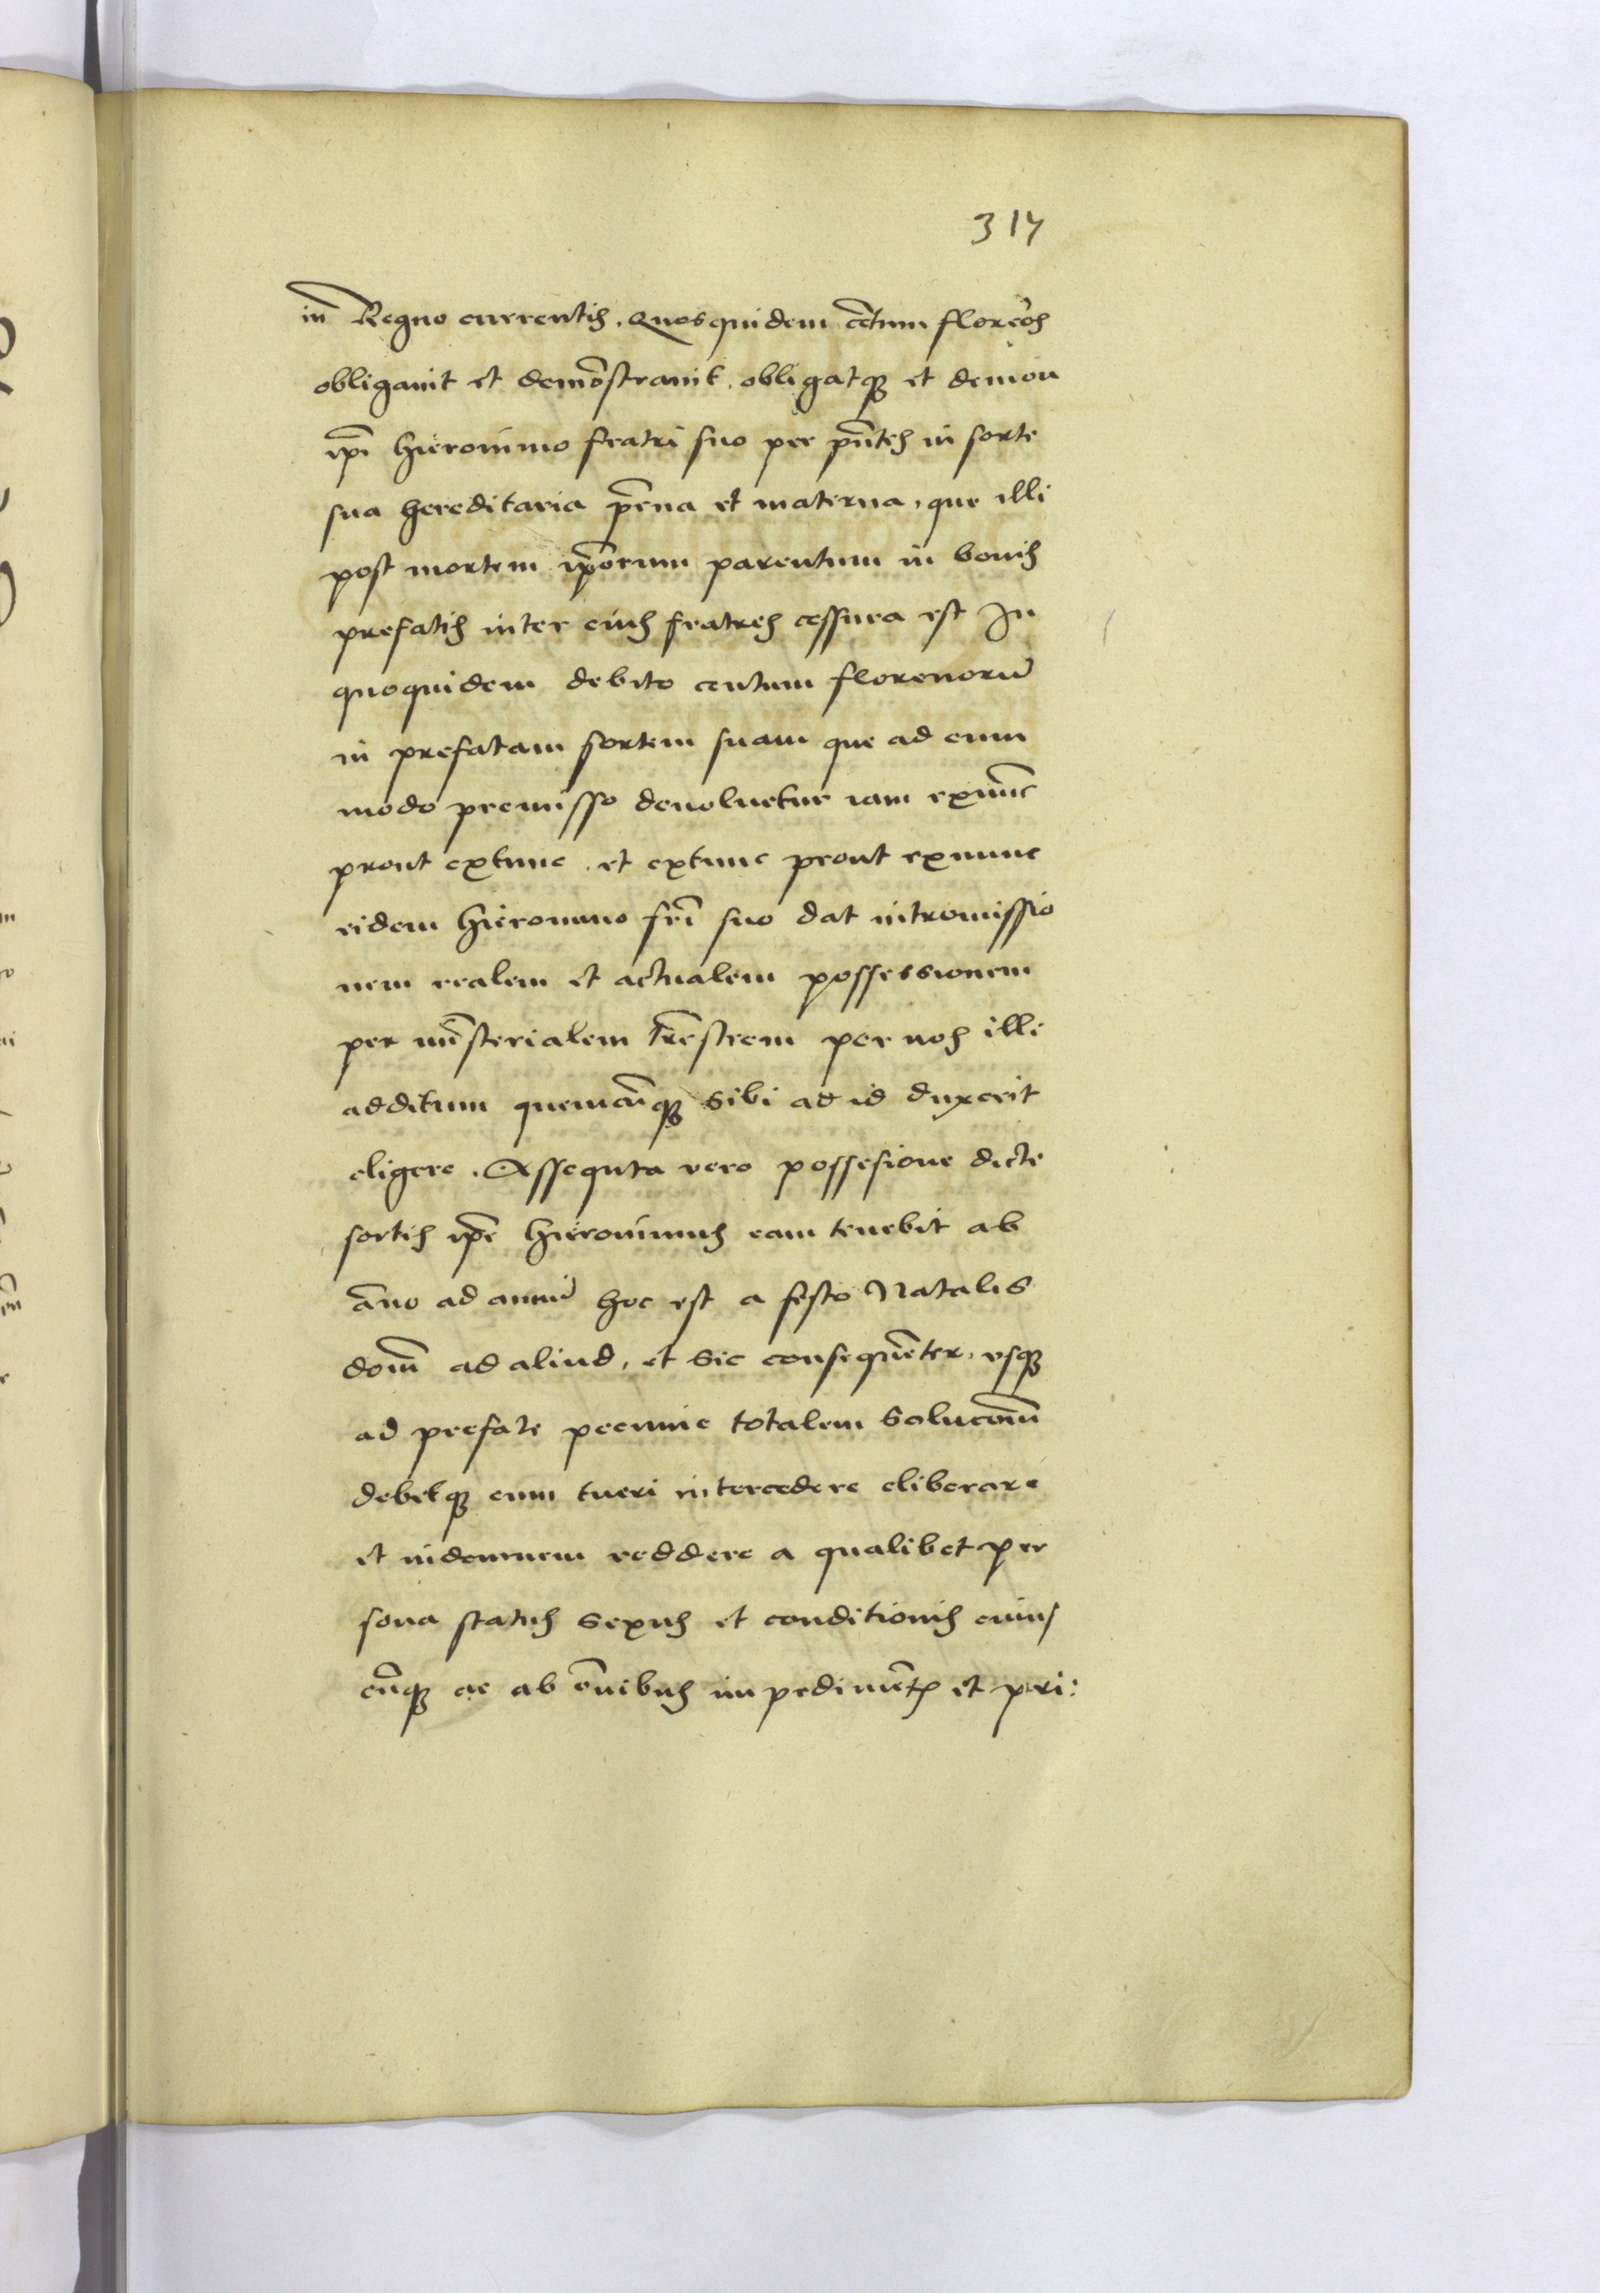 317
in Regno currentis. Quos quidem cẽtum florẽos
obligauit et demõstrauit. obligatq̃ et demon
ip̃i Hieronimo fratri suo per pñtes in sorte
sua hereditaria pr̃ena et materna, que illi
post mortem ip̃orum parentum in bonis
prefatis inter eius fratres cessura est In
quoquidem debito centum florenorũ
in prefatam sortem suam que ad eum
modo premisso deuoluetur iam exnũc
prout extunc. et extunc prout exnunc
eidem Hieronimo fr̃i suo dat intromissio
nem realem et actualem possessionem
per mĩsterialem tr̃estrem per nos illi
additum quemcũq̃ sibi ad id duxerit
eligere. Assequta vero possesione dicte
sortis ip̃e Hieronimus eam tenebit ab
ãno ad annũ hoc est a festo Natalis
dom̃ ad aliud, et sic consequẽter, vsq̃
ad prefate pecunie totalem solucõm̃
debetq̃ eum tueri intercedere eliberare
et indemnem reddere a qualibet per
sona status sexus et conditionis cuius
cũq̃ ac ab õnibus impedimẽt̃ et pri: